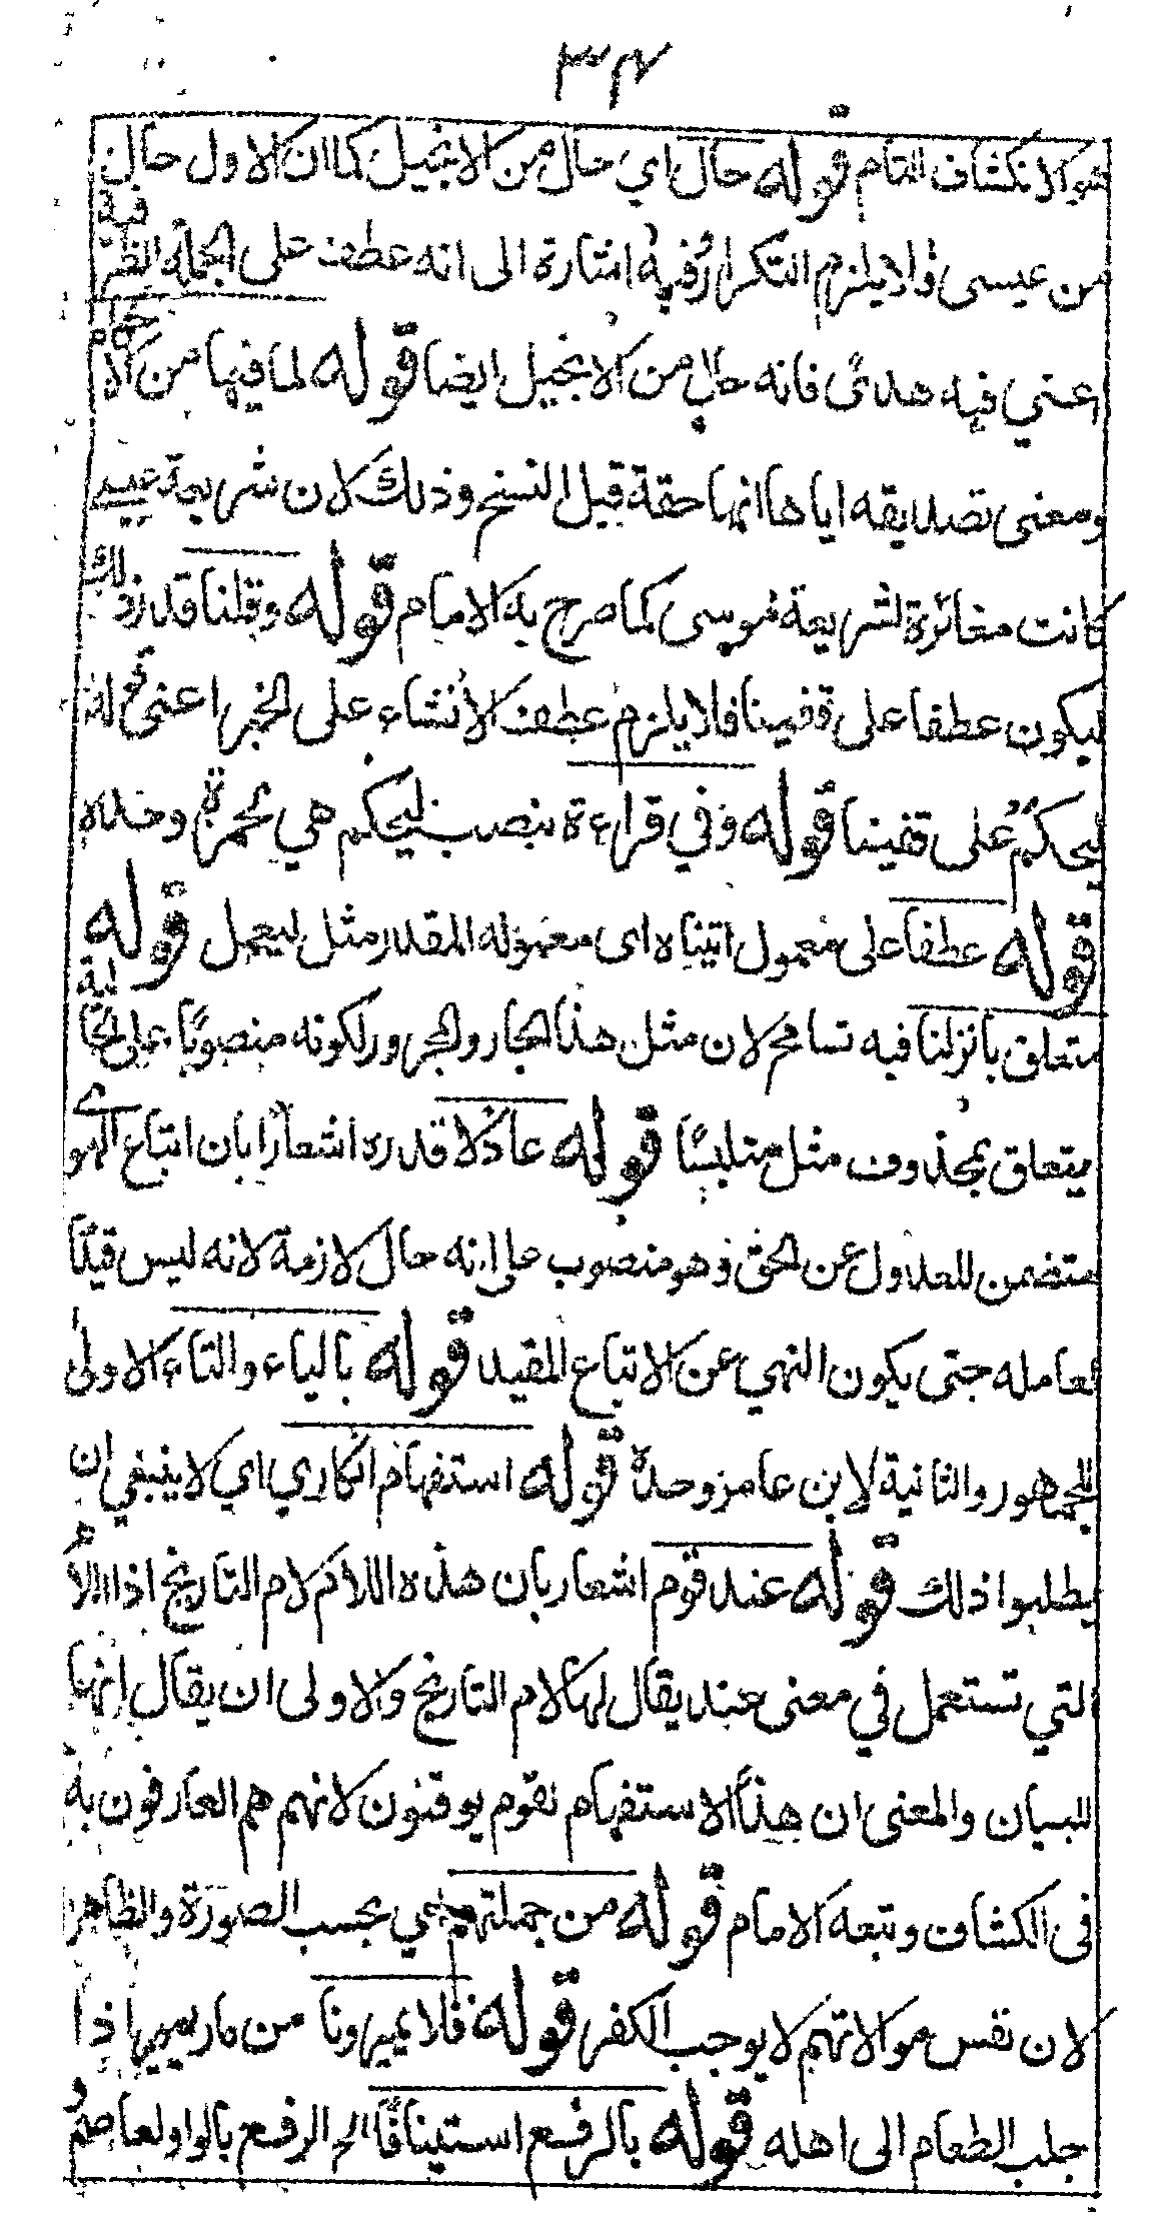 ٣٣٧
هو الانكشاف التام قوله حال اي حال من الانجيل كما ان الاول حال
من عيسى ولا يلزم التكرار وفيه اشارة الى انه عطف على الجملة الظرفية
اعني فيه هدى فانه حال من الانجيل ايضا قوله لما فيها من الاحكام
ومعنى تصديقه اياها انها حقة قبل النسخ وذلك لان شريعة عيسى
كانت مغائرة لشريعة موسى كما صرح به الامام قوله وقلنا قدر ذلك
ليكون عطفا على قفينا فلا يلزم عطف الانشاء على الخبر اعني
ليحكم على قفينا قوله وفي قراءة بنصب ليحكم هي لحمزة وحده
قوله عطفا على معمول اتيناه اى معموله المقدر مثل ليعمل قوله
متعلق بانزلنا فيه تسامح لان مثل هذا الجار والمجرور لكونه منصوبا على الحالية
يتعلق بمحذوف مثل متلبسا قوله عادلا قدره اشعارا بان اتباع الهوى
متضمن للعدول عن الحق وهو منصوب على انه حال لازمة لانه ليس قيدا
لعامله حتى يكون النهي عن الاتباع المقيد قوله بالياء والتاء الاولى
للجمهور والثانية لابن عامر وحده قوله استفهام انكاري اي لا ينبغي ان
يطلبوا ذلك قوله عند قوم اشعار بان هذه اللام لام التاريخ اذ اللام
التي تستعمل في معنى عند يقال لها لام التاريخ والاولى ان يقال انها
للبيان والمعنى ان هذا الاستفهام لقوم يوقنون لانهم هم العارفون به
فى الكشاف وتبعه الامام قوله من جملتهم اي بحسب الصورة والظاهر
لان نفس موالاتهم لا يوجب الكفر قوله فلا يميرونا من مار يميرها اذا
جلب الطعام الى اهله قوله بالرفع استينافا الخ الرفع بالواو لعاصم و